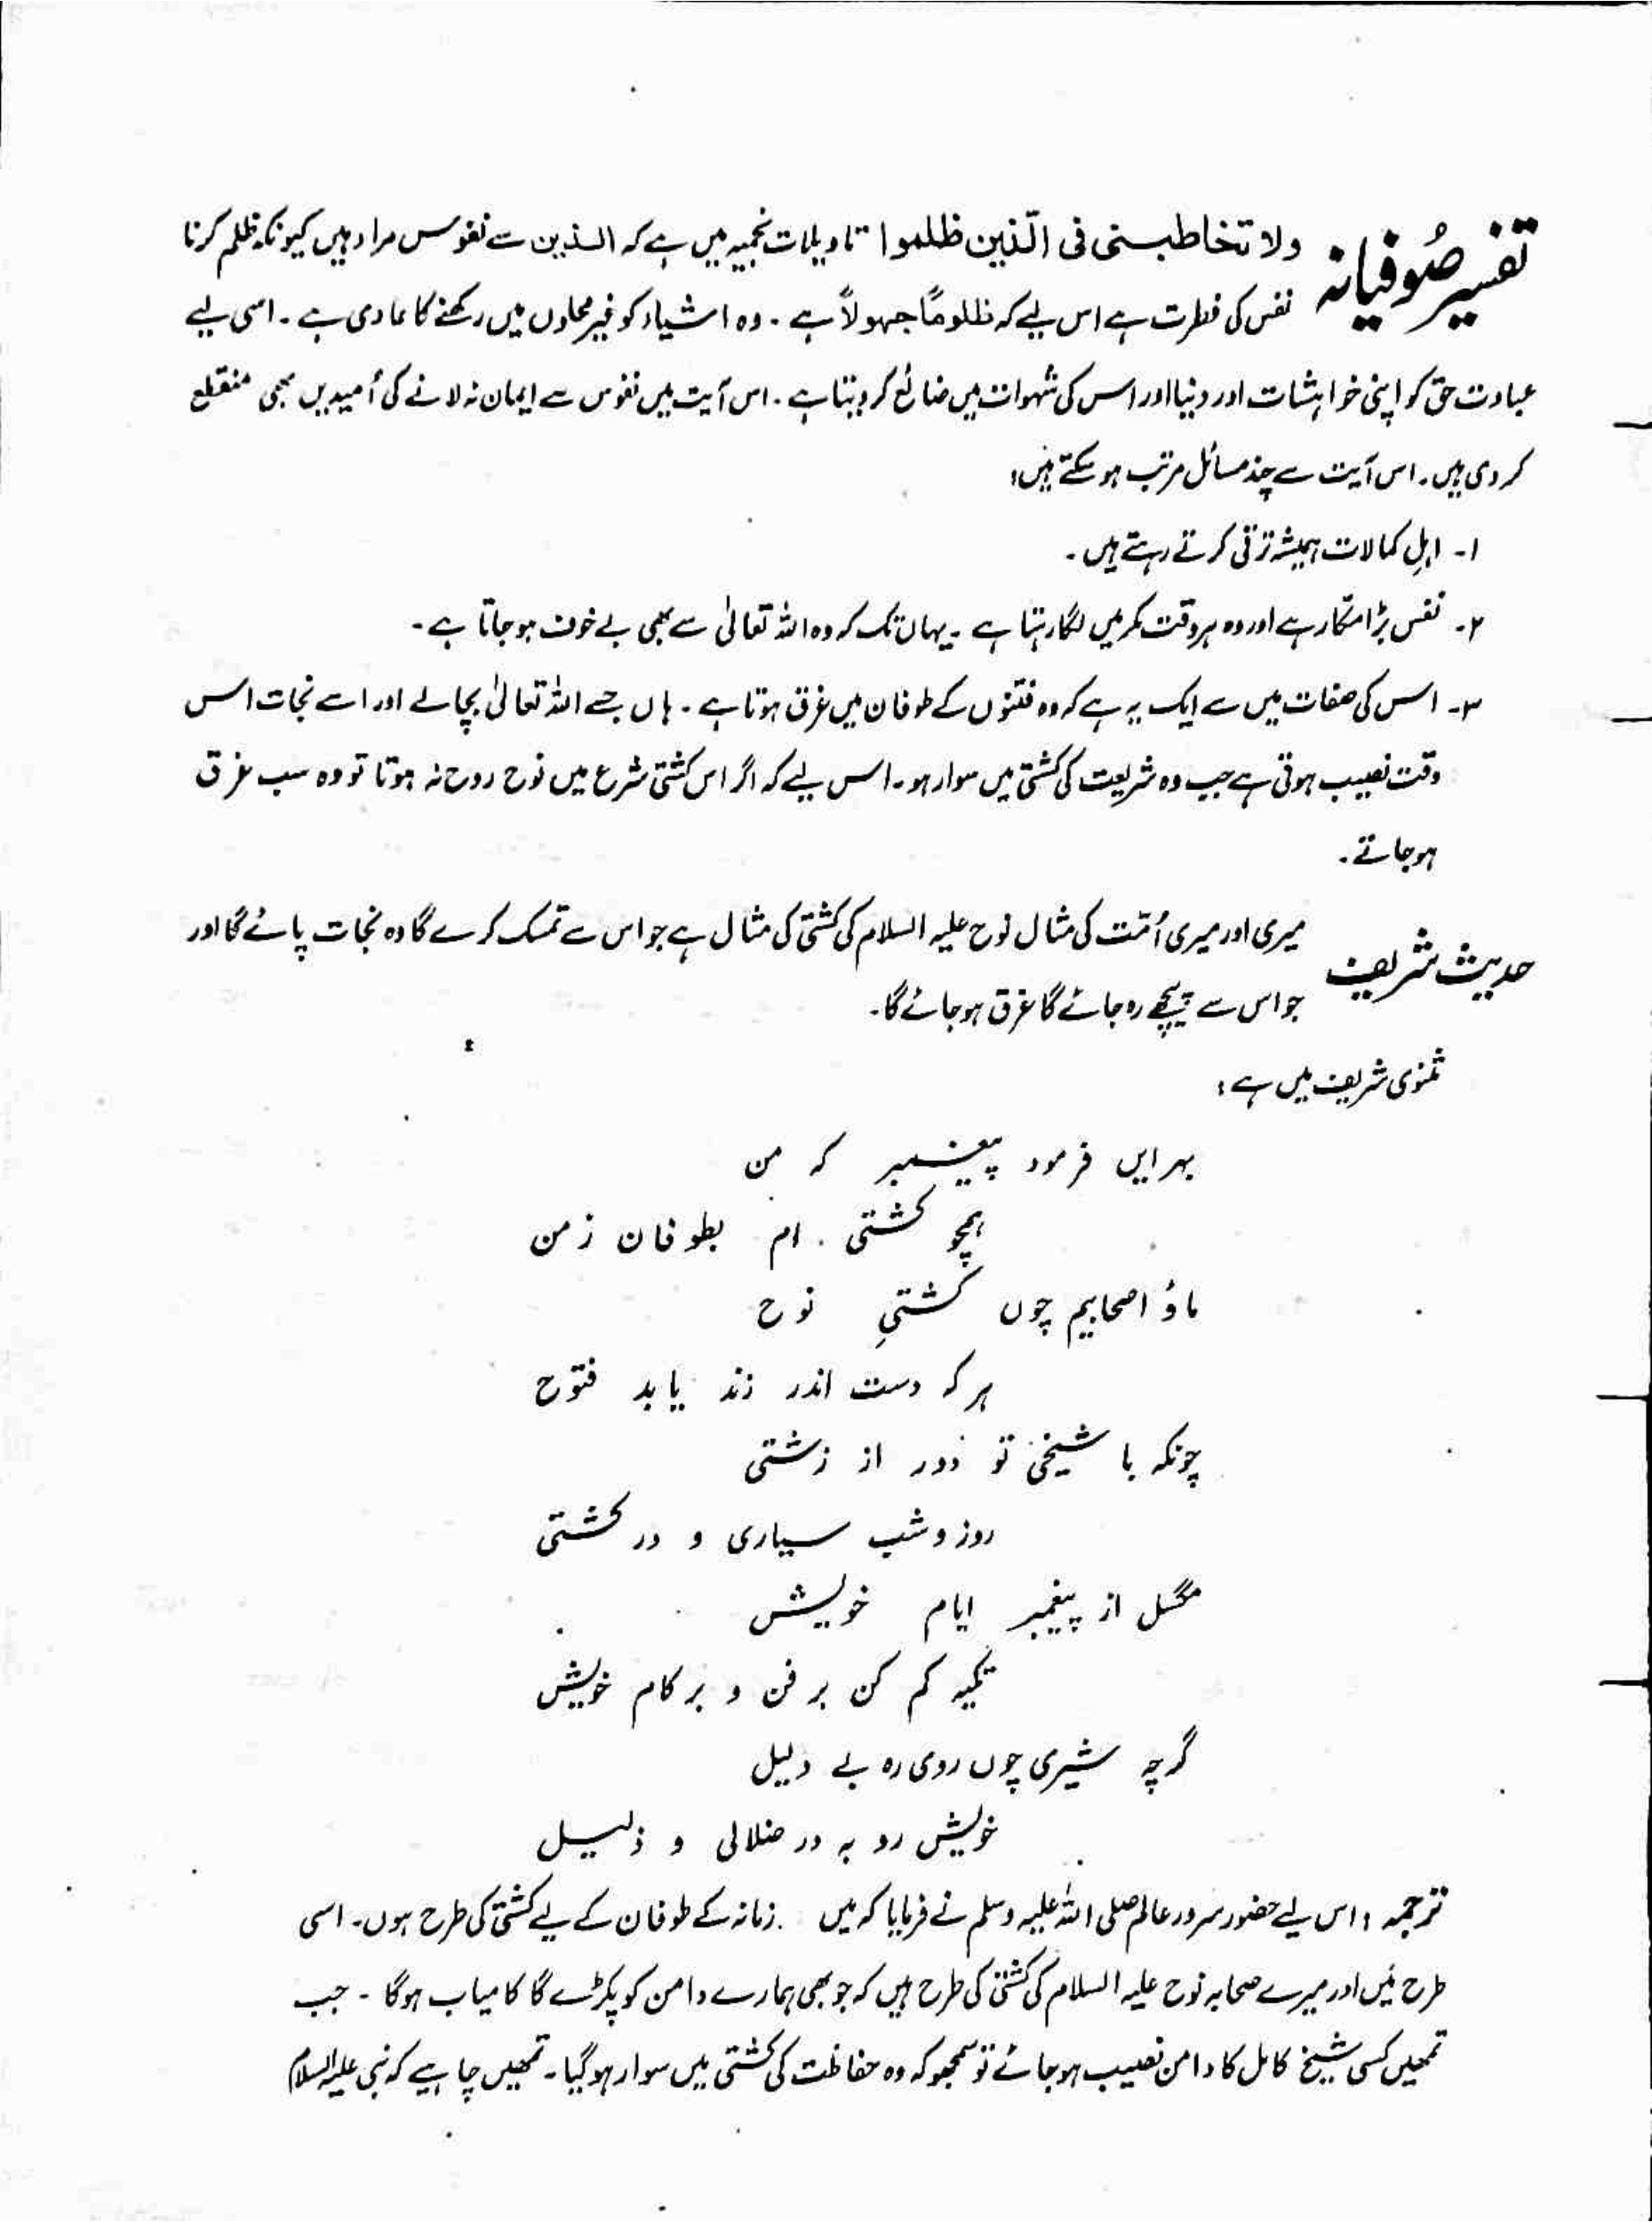 تفسیر صُوفیانہ ولا تخاطبنی فی الّذین ظلموا تاویلات نجمیہ میں ہے کہ الذین سے نفوس مراد ہیں کیونکہ ظلم کرنا
نفس کی فطرت ہے اس لیے کہ ظلومًا جہولاً ہے ۔ وہ اشیاء کو غیر محلوں میں رکھنے کا عادی ہے ۔ اسی لیے
عبادت حق کو اپنی خواہشات اور دنیا اور اس کی شہوات میں ضائع کر دیتا ہے ۔ اس آیت میں نفوس سے ایمان نہ لانے کی اُمیدیں بھی منقطع
کر دی ہیں ۔ اس آیت سے چند مسائل مرتب ہو سکتے ہیں :
۱ ۔ اہلِ کمالات ہمیشہ ترقی کرتے رہتے ہیں ۔
۲ ۔ نفس بڑا مکّار ہے اور وہ ہر وقت مکر میں لگا رہتا ہے ۔ یہاں تک کہ وہ اللہ تعالیٰ سے بھی بے خوف ہو جاتا ہے ۔
۳ ۔ اس کی صفات میں سے ایک یہ ہے کہ وہ فتنوں کے طوفان میں غرق ہوتا ہے ۔ ہاں جسے اللہ تعالیٰ بچا لے اور اسے نجات اس
وقت نصیب ہوتی ہے جب وہ شریعت کی کشتی میں سوار ہو ۔ اس لیے کہ اگر اس کشتی شرع میں نوح روح نہ ہوتا تو وہ سب غرق
ہو جاتے ۔
حدیث شریف میری اور میری اُمّت کی مثال نوح علیہ السلام کی کشتی کی مثال ہے جو اس سے تمسک کرے گا وہ نجات پائے گا اور
جو اس سے پیچھے رہ جائے گا غرق ہو جائے گا ۔
مثنوی شریف میں ہے :
بہر ایں فرمود پیغمبر کہ من
ہمچو کشتی ام بطوفان زمن
ما وُ اصحابیم چوں کشتیِ نوح
ہر کہ دست اندر زند یابد فتوح
چونکہ با شیخی تو دور از زشتی
روز و شب سیاری و در کشتی
مگسل از پیغمبر ایام خویش
تکیہ کم کن بر فن و بر کام خویش
گرچہ شیری چوں روی رہ بے دلیل
خویش رو بہ در ضلالی و ذلیل
ترجمہ : اس لیے حضور سرور عالم صلی اللہ علیہ وسلم نے فرمایا کہ میں زمانہ کے طوفان کے لیے کشتی کی طرح ہوں ۔ اسی
طرح مَیں اور میرے صحابہ نوح علیہ السلام کی کشتی کی طرح ہیں کہ جو بھی ہمارے دامن کو پکڑے گا کامیاب ہوگا ۔ جب
تمھیں کسی شیخ کامل کا دامن نصیب ہو جائے تو سمجھو کہ وہ حفاظت کی کشتی میں سوار ہو گیا ۔ تمھیں چاہیے کہ نبی علیہ السلام